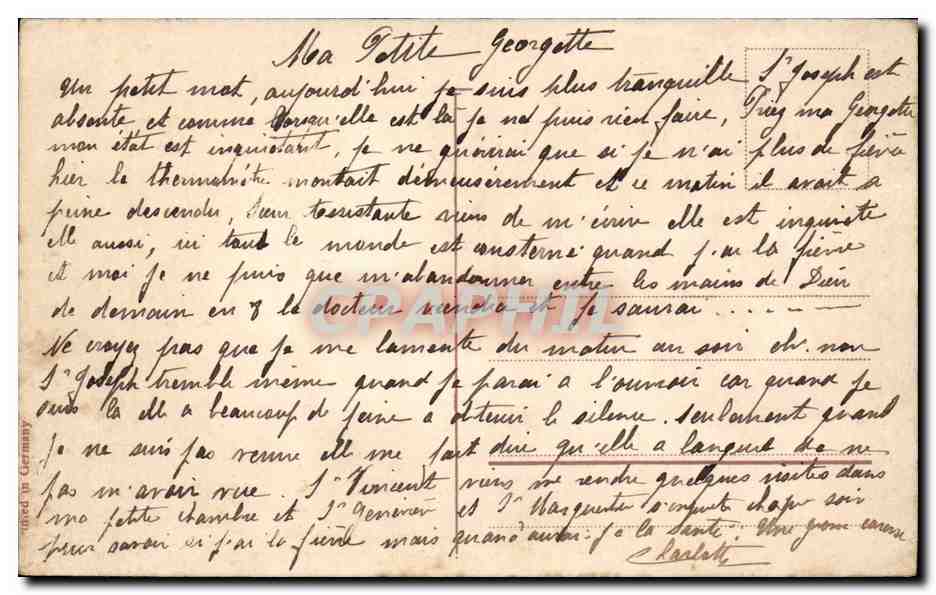 Ma Petite Georgette
Un petit mot, aujourd'hui je suis plus tranquille Sr Joseph est
absente et comme lorsqu'elle est là je ne puis rien faire, Priez ma Georgette
mon état est inquiétant, je ne guérirai que si je n'ai plus de fièvre
hier le thermomètre montait démesurément et ce matin il avait a
peine descendu, Sœur Assistante viens de m'écrire elle est inquiète
elle aussi, ici tout le monde est consterné quand j'ai la fièvre
et moi je ne puis que m'abandonner entre les mains de Dieu
de demain en 8 le docteur viendra et je saurai ......
Ne croyez pas que je me lamente du matin au soir oh. non
Sr Joseph tremble même quand je parai a l'ouvroir car quand je
suis là elle a beaucoup de peine a obtenir le silence. seulement quand
je ne suis pas venue elle me fait dire qu'elle a languit de ne
pas m'avoir vue. Sr Vincent viens me rendre quelques visites dans
ma petite chambre et Sr et Sr Marguerite chaque soir
pour savoir si j'ai la fièvre mais quand aurai-je la santé. Une grosse caresse
Charlotte
CPAPHIL
in Germany